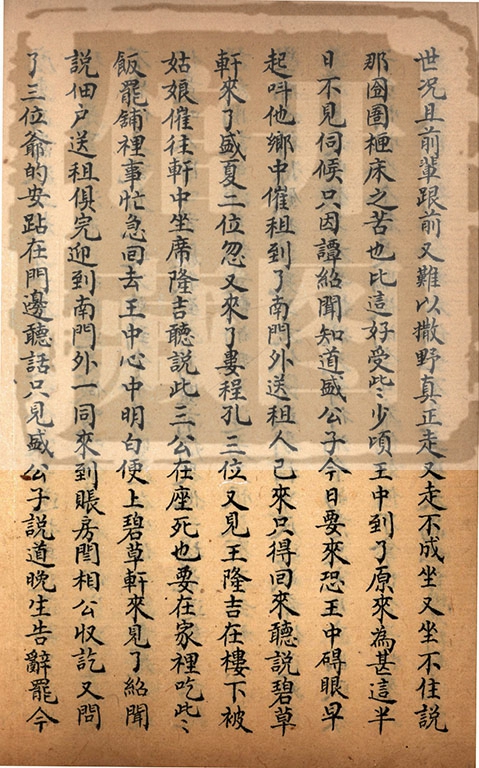 世况且前輩跟前又難以撒野真正走又走不成坐又坐不住說
那囹圄柙床之苦也比這好受些少頃王中到了原來為甚這半
日不見伺候只因譚紹聞知道盛公子今日要來恐王中碍眼早
起呌他鄉中催租到了南門外送租人已來只得回來聽說碧草
軒來了盛夏二位忽又來了婁程孔三位又見王隆吉在樓下被
姑娘催徃軒中坐席隆吉聽說此三公在座死也要在家裡吃些
飯罷舖裡事忙急回去王中心中明白便上碧草軒來見了紹聞
說佃户送租俱完迎到南門外一同來到賬房閆相公収訖又問
了三位爺的安跕在門邊聽話只見盛公子說道晚生告辭罷今